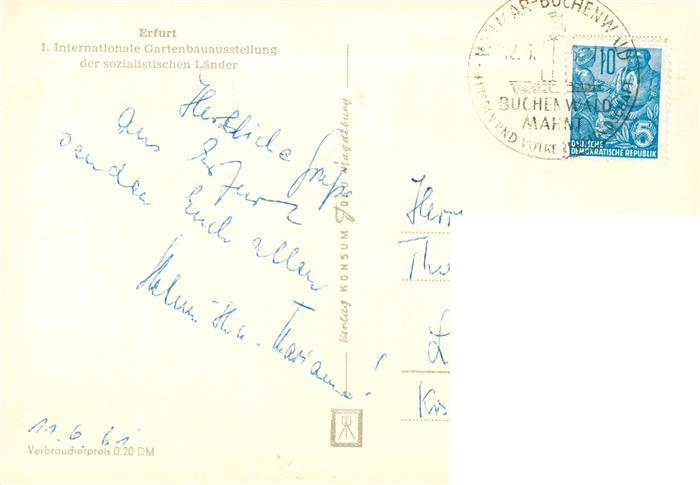 Erfurt
1. Internationale Gartenbauausstellung
der sozialistischen Länder
Herzliche Grüße
aus Erfurt
senden Euch allen
Marianne!
11.6.61
Verbraucherpreis 0.20 DM
Verlag KONSUM FOTO Magdeburg
WEIMAR-BUCHENWALD
BUCHENWALD
MAHNT
10
5
DEUTSCHE
DEMOKRATISCHE REPUBLIK
Herr
Tho
L